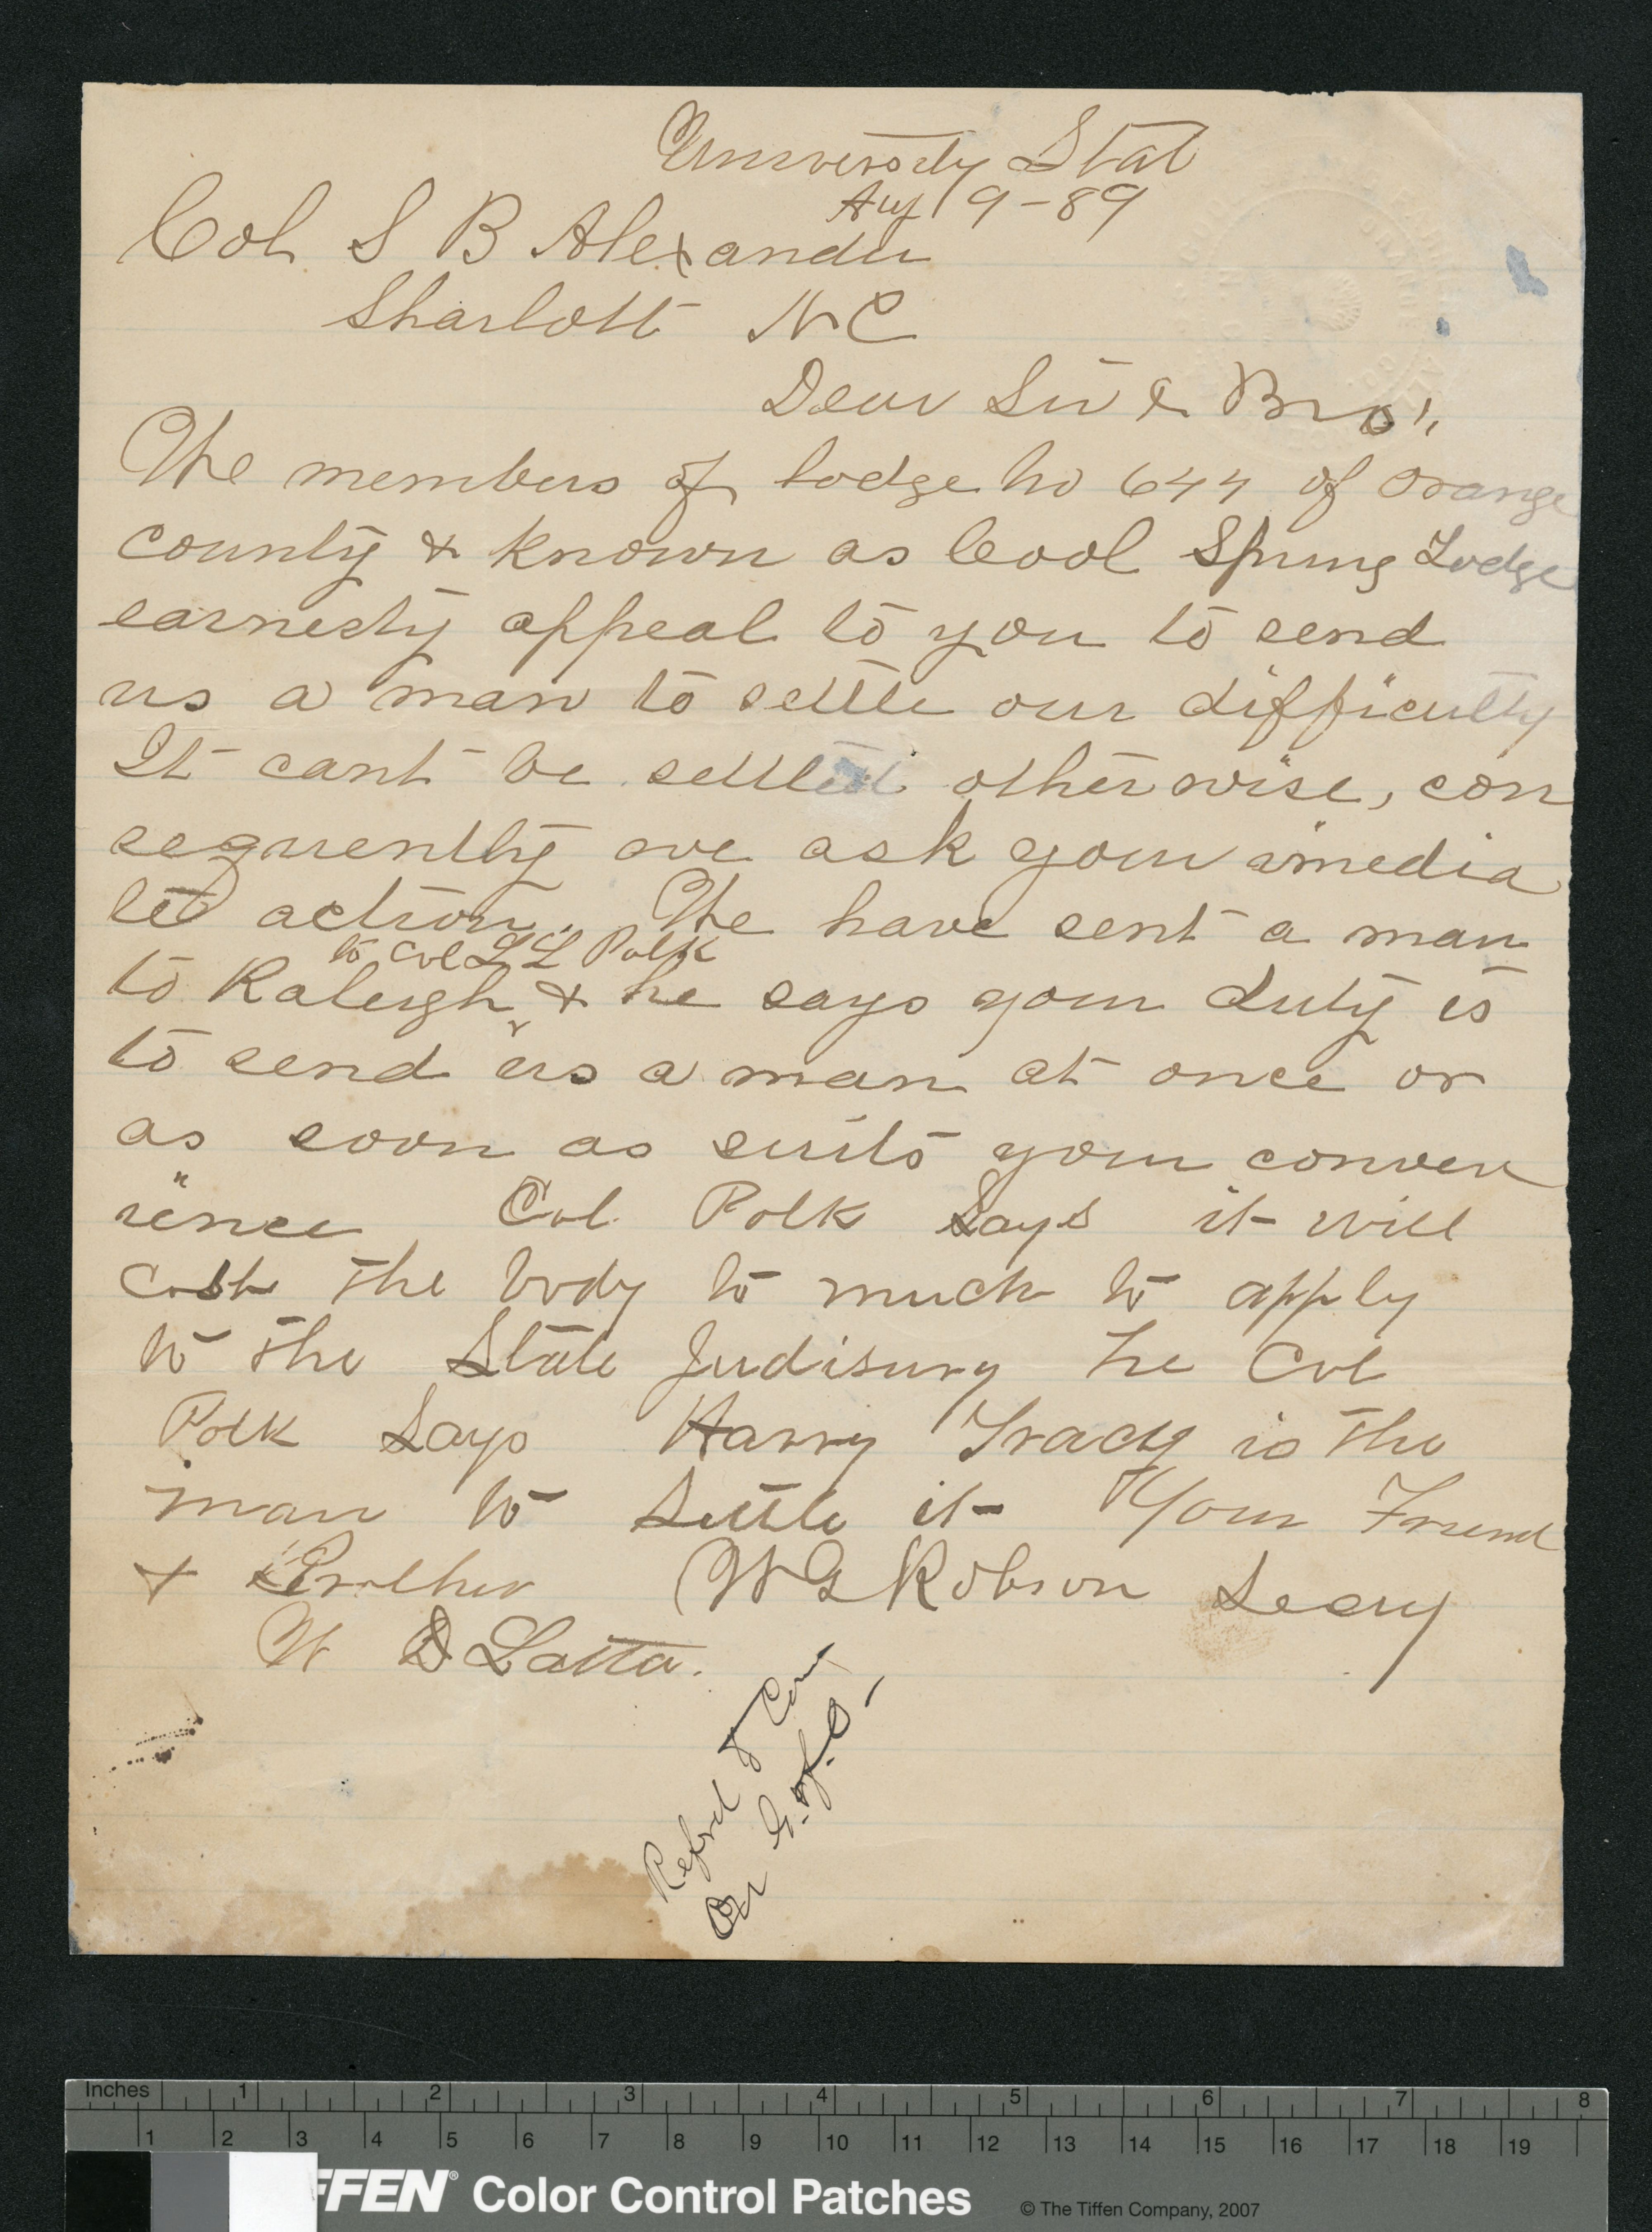 University Stat
Aug 9-89
Col S B Alexander
Sharlott N C
Dear Sir & Bro!,
The members of lodge No 644 of Orange
county & known as Cool Spring Lodge
earnesty appeal to you to send
us a man to settle our difficulty
It cant be settled otherwise, con
sequently we ask your imedia
te action. We have sent a man
to Col L L Polk
to Raleigh & he says your duty is
to send us a man at once or
as soon as suits your conven
ience Col. Polk Says it will
Cost the body to much to apply
to the State Judisury he Col
Polk Says Harry Tracy is the
man to Settle it Your Friend
& Brother W G Robson Secry
W D Latta.
Reford to Com
on G. of. O-
Inches 1 2 3 4 5 6 7 8
1 2 3 4 5 6 7 8 9 10 11 12 13 14 15 16 17 18 19
FFEN® Color Control Patches © The Tiffen Company, 2007